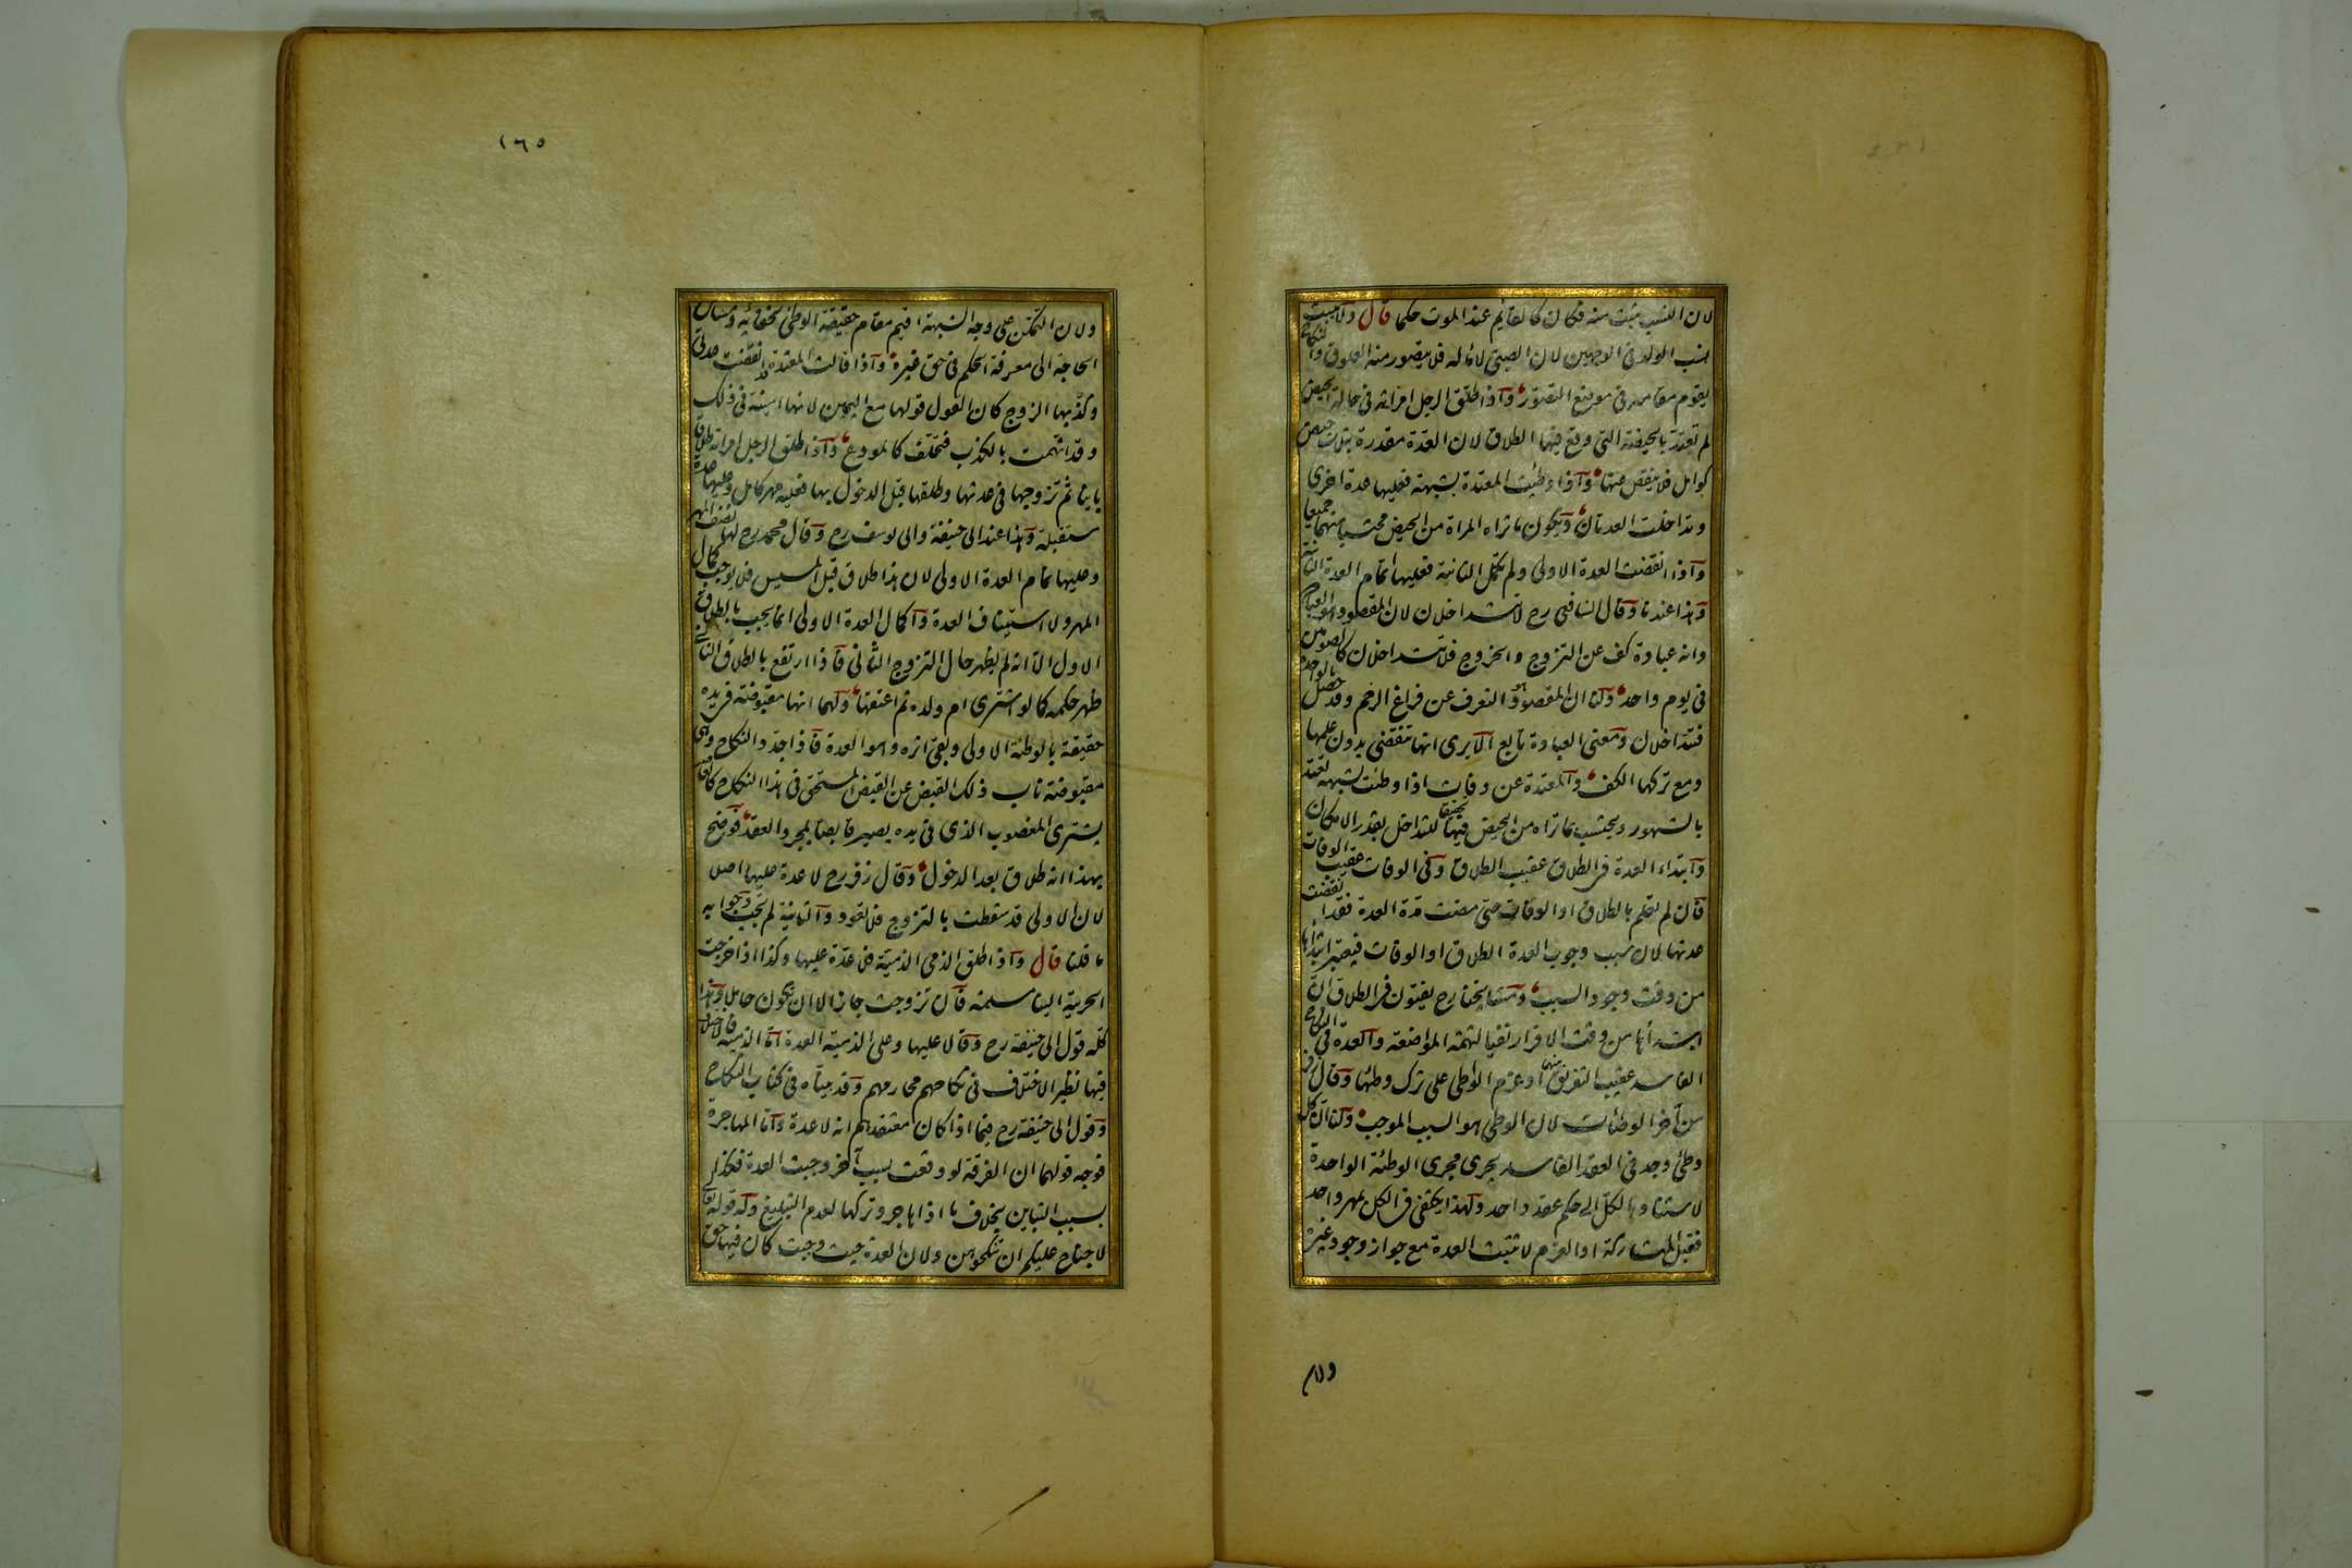 لان النسب يثبت منه فكان كالقائم عند الموت حكما قال ولا يثبت
نسب الولد فى الوجهين لان الصبى لا ماء له فلا يتصور منه العلوق والنكاح
يقوم مقامه فى موضع التصور واذا طلق الرجل امراته فى حالة الحيض
لم تعتد بالحيضة التى وقع فيها الطلاق لان العدة مقدرة بثلث حيض
كوامل فلا ينقص عنها واذا وطئت المعتدة بشبهة فعليها عدة اخرى
وتداخلت العدتان ويكون ما تراه المراة من الحيض محتسبا منهما جميعا
واذا انقضت العدة الاولى ولم تكمل الثانية فعليها اتمام العدة الثانية
وهذا عندنا وقال الشافعى رح لا تتداخلان لان المقصود هو العبادة
وانه عبادة كف عن التزوج والخروج فلا تتداخلان كالصومين
فى يوم واحد ولنا ان المقصود هو التعرف عن فراغ الرحم وقد حصل بالواحدة
فتتداخلان ومعنى العبادة تابع الا يرى انها تنقضى بدون علمها
ومع تركها الكف والمعتدة عن وفات اذا وطئت بشبهة تعتد
بالشهور ويحتسب بما تراه من الحيض فيها تحقيقا للتداخل بقدر الامكان
وابتداء العدة فى الطلاق عقيب الطلاق وفى الوفات عقيب الوفات
فان لم تعلم بالطلاق او الوفات حتى مضت مدة العدة فقد انقضت
عدتها لان سبب وجوب العدة الطلاق او الوفات فيعتبر ابتداءها
من وقت وجود السبب ومشايخنا رح يفتون فى الطلاق ان
ابتداءها من وقت الاقرار نفيا لتهمة المواضعة والعدة فى النكاح
الفاسد عقيب التفريق بينهما او عزم الواطى على ترك وطئها وقال زفر
من آخر الوطئات لان الوطى هو السبب الموجب ولنا ان كل
وطئ وجد فى العقد الفاسد يجرى مجرى الوطئة الواحدة
لاستناد الكل الى حكم عقد واحد ولهذا يكتفى فى الكل بمهر واحد
فقبل المتاركة او العزم لا تثبت العدة مع جواز وجود غيره
ولان
١٦٥
ولان التمكن على وجه الشبهة اقيم مقام حقيقة الوطئ لخفائه ومساس
الحاجة الى معرفة الحكم فى حق غيره واذا قالت المعتدة قد انقضت عدتى
وكذبها الزوج كان القول قولها مع اليمين لانها امينة فى ذلك
وقد اتهمت بالكذب فتحلف كالمودع واذا طلق الرجل امراته طلاقا
باينا ثم تزوجها فى عدتها وطلقها قبل الدخول بها فعليه مهر كامل وعليها عدة
مستقبلة وهذا عند ابى حنيفة وابى يوسف رح وقال محمد رح لها نصف المهر
وعليها تمام العدة الاولى لان هذا طلاق قبل المسيس فلا يوجب كمال
المهر ولا استيناف العدة واكمال العدة الاولى انما يجب بالطلاق
الاول الا انه لم يظهر حال التزوج الثانى فاذا ارتفع بالطلاق الثانى
ظهر حكمه كما لو اشترى ام ولده ثم اعتقها ولهما انها مقبوضة فى يده
حقيقة بالوطئة الاولى وبقى اثره وهو العدة فاذا جدد النكاح وهى
مقبوضة ناب ذلك القبض عن القبض المستحق فى هذا النكاح كالغاصب
يشترى المغصوب الذى فى يده يصير قابضا بمجرد العقد فوضح
بهذا انه طلاق بعد الدخول وقال زفر رح لا عدة عليها اصلا
لان الاولى قد سقطت بالتزوج فلا تعود والثانية لم تجب وجوابه
ما قلنا قال واذا طلق الذمى الذمية فلا عدة عليها وكذا اذا خرجت
الحربية الينا مسلمة فان تزوجت جاز الا ان تكون حاملا وهذا
كله قول ابى حنيفة رح وقالا عليها وعلى الذمية العدة اما الذمية فالاختلاف
فيها نظير الاختلاف فى نكاحهم محارمهم وقد بيناه فى كتاب النكاح
وقول ابى حنيفة رح فيما اذا كان معتقدهم انه لا عدة واما المهاجرة
فوجه قولهما ان الفرقة لو وقعت بسبب آخر وجبت العدة فكذا
بسبب التباين بخلاف ما اذا هاجر وتركها لعدم التبليغ وله قوله تعالى
لا جناح عليكم ان تنكحوهن ولان العدة حيث وجبت كان فيها حق